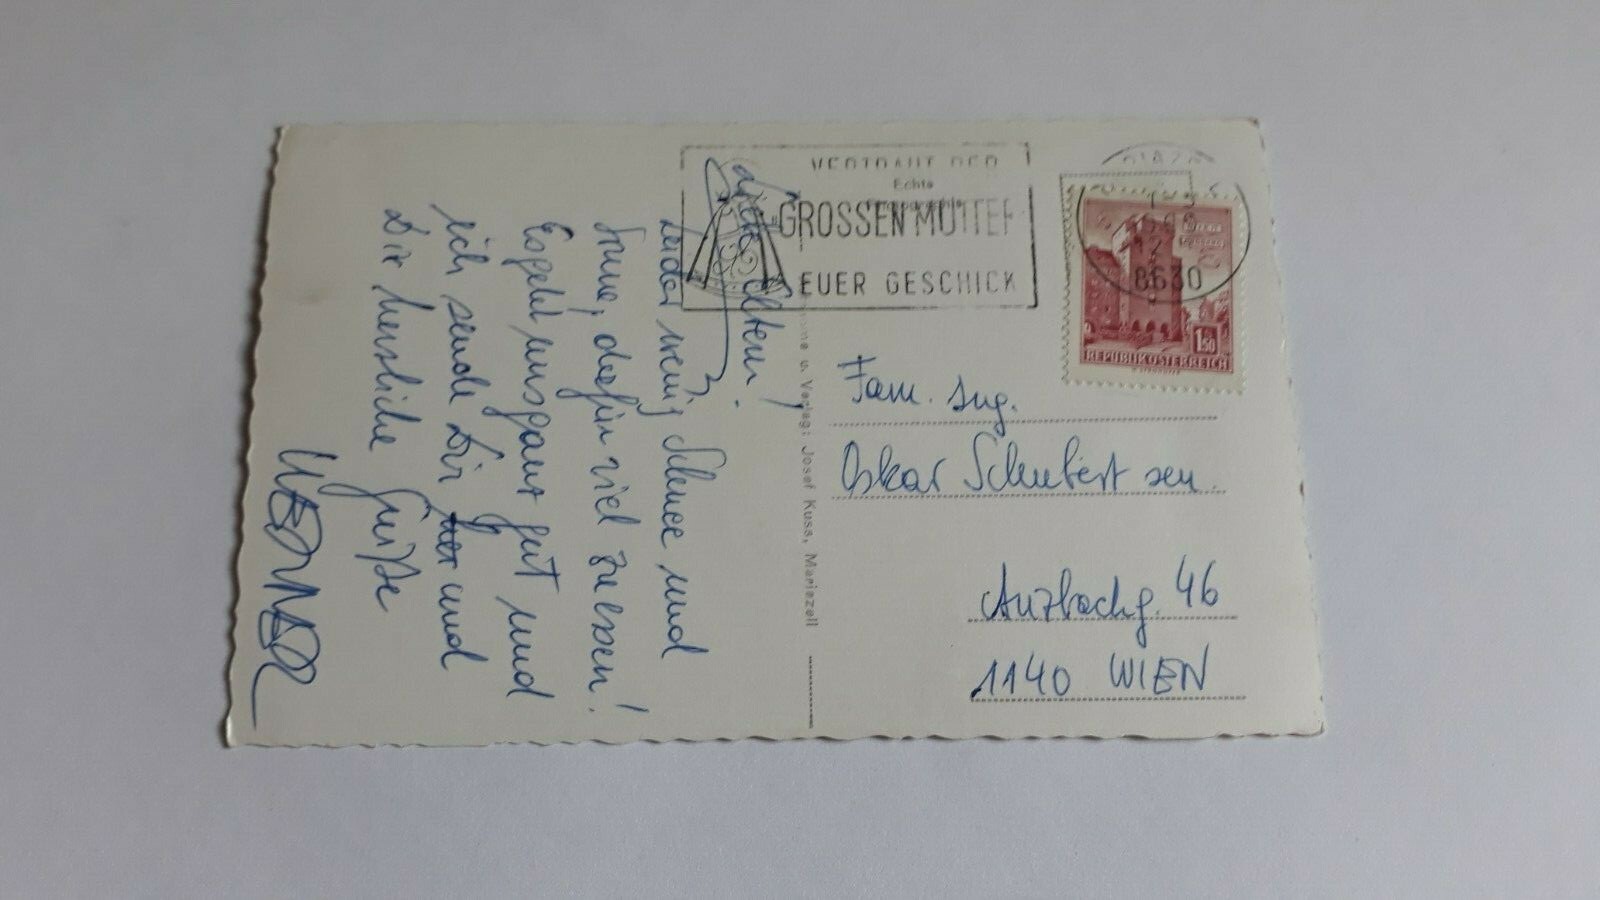 Liebe Eltern!
Leider wenig Schnee und
Sonne, dafür viel zu essen!
Es geht uns ganz gut und
ich sende Dir und
Dir herzliche Grüße
WERNER
VERTRAUT DER
GROSSEN MUTTER
EUER GESCHICK
Echte
Photographie
8630
1.50
REPUBLIK ÖSTERREICH
u. Verlag: Josef Kuss, Mariazell
Fam. Ing.
Oskar Schubert sen.
Anzbachg. 46
1140 WIEN